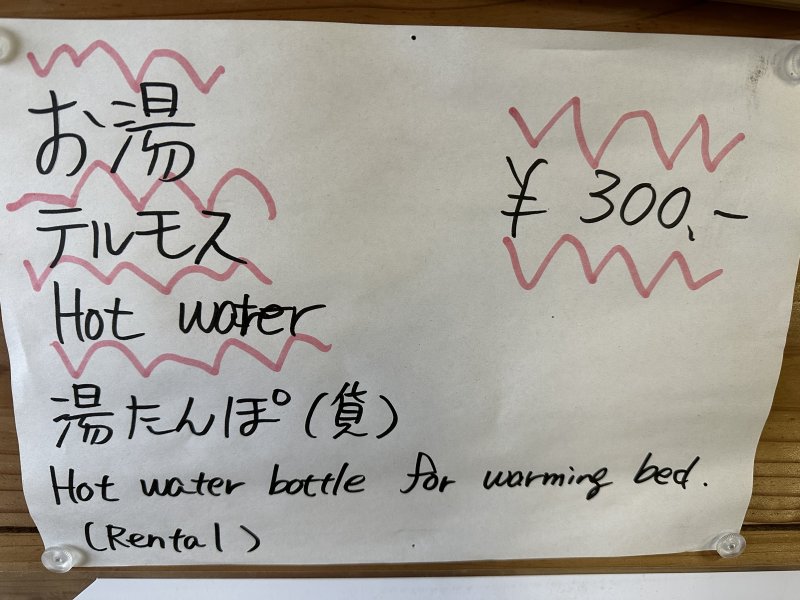 お湯
テルモス
¥ 300.-
Hot water
湯たんぽ(貸)
Hot water bottle for warming bed.
(Rental)